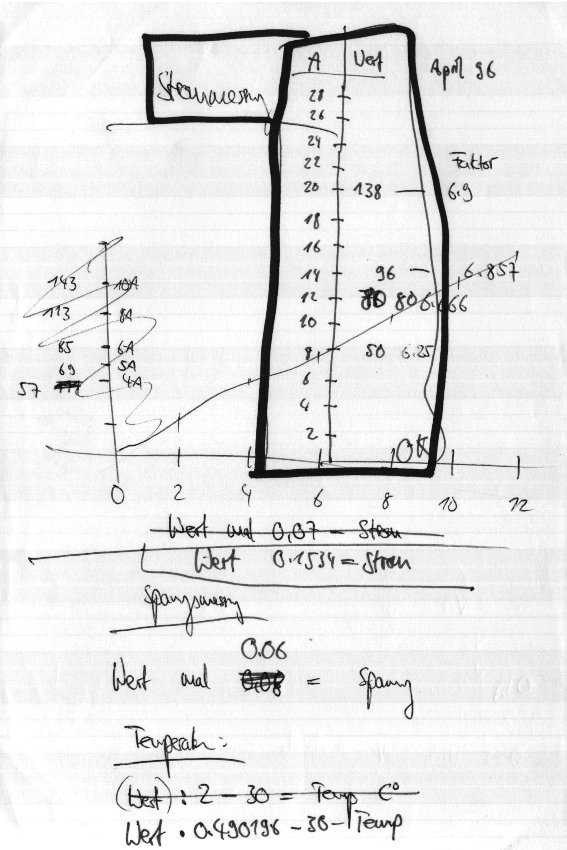 A Wert April 96
Strommessung
28
26
24
22 Faktor
20 138 6.9
18
16
14 96 6.857
12 80 6.666
10
8 50 6.25
6
4
2
OK
143 10A
113 8A
85 6A
69 5A
57 4A
0 2 4 6 8 10 12
Wert mal 0,07 = Strom
Wert 0.1534 = Strom
Spannungsmessung
0.06
Wert mal 0.08 = Spannung
Temperatur:
(Wert) : 2 - 30 = Temp C°
Wert · 0.490196 - 30 - Temp